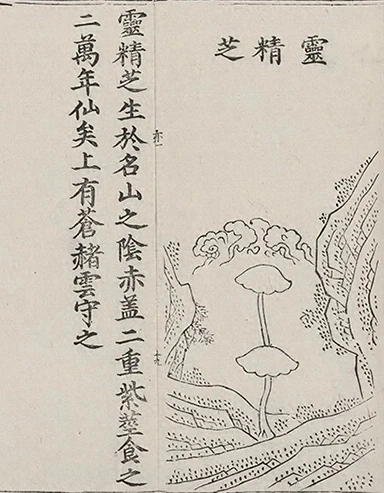 靈精芝
靈精芝生於名山之陰赤盖二重紫莖食之
二萬年仙矣上有蒼赭雲守之